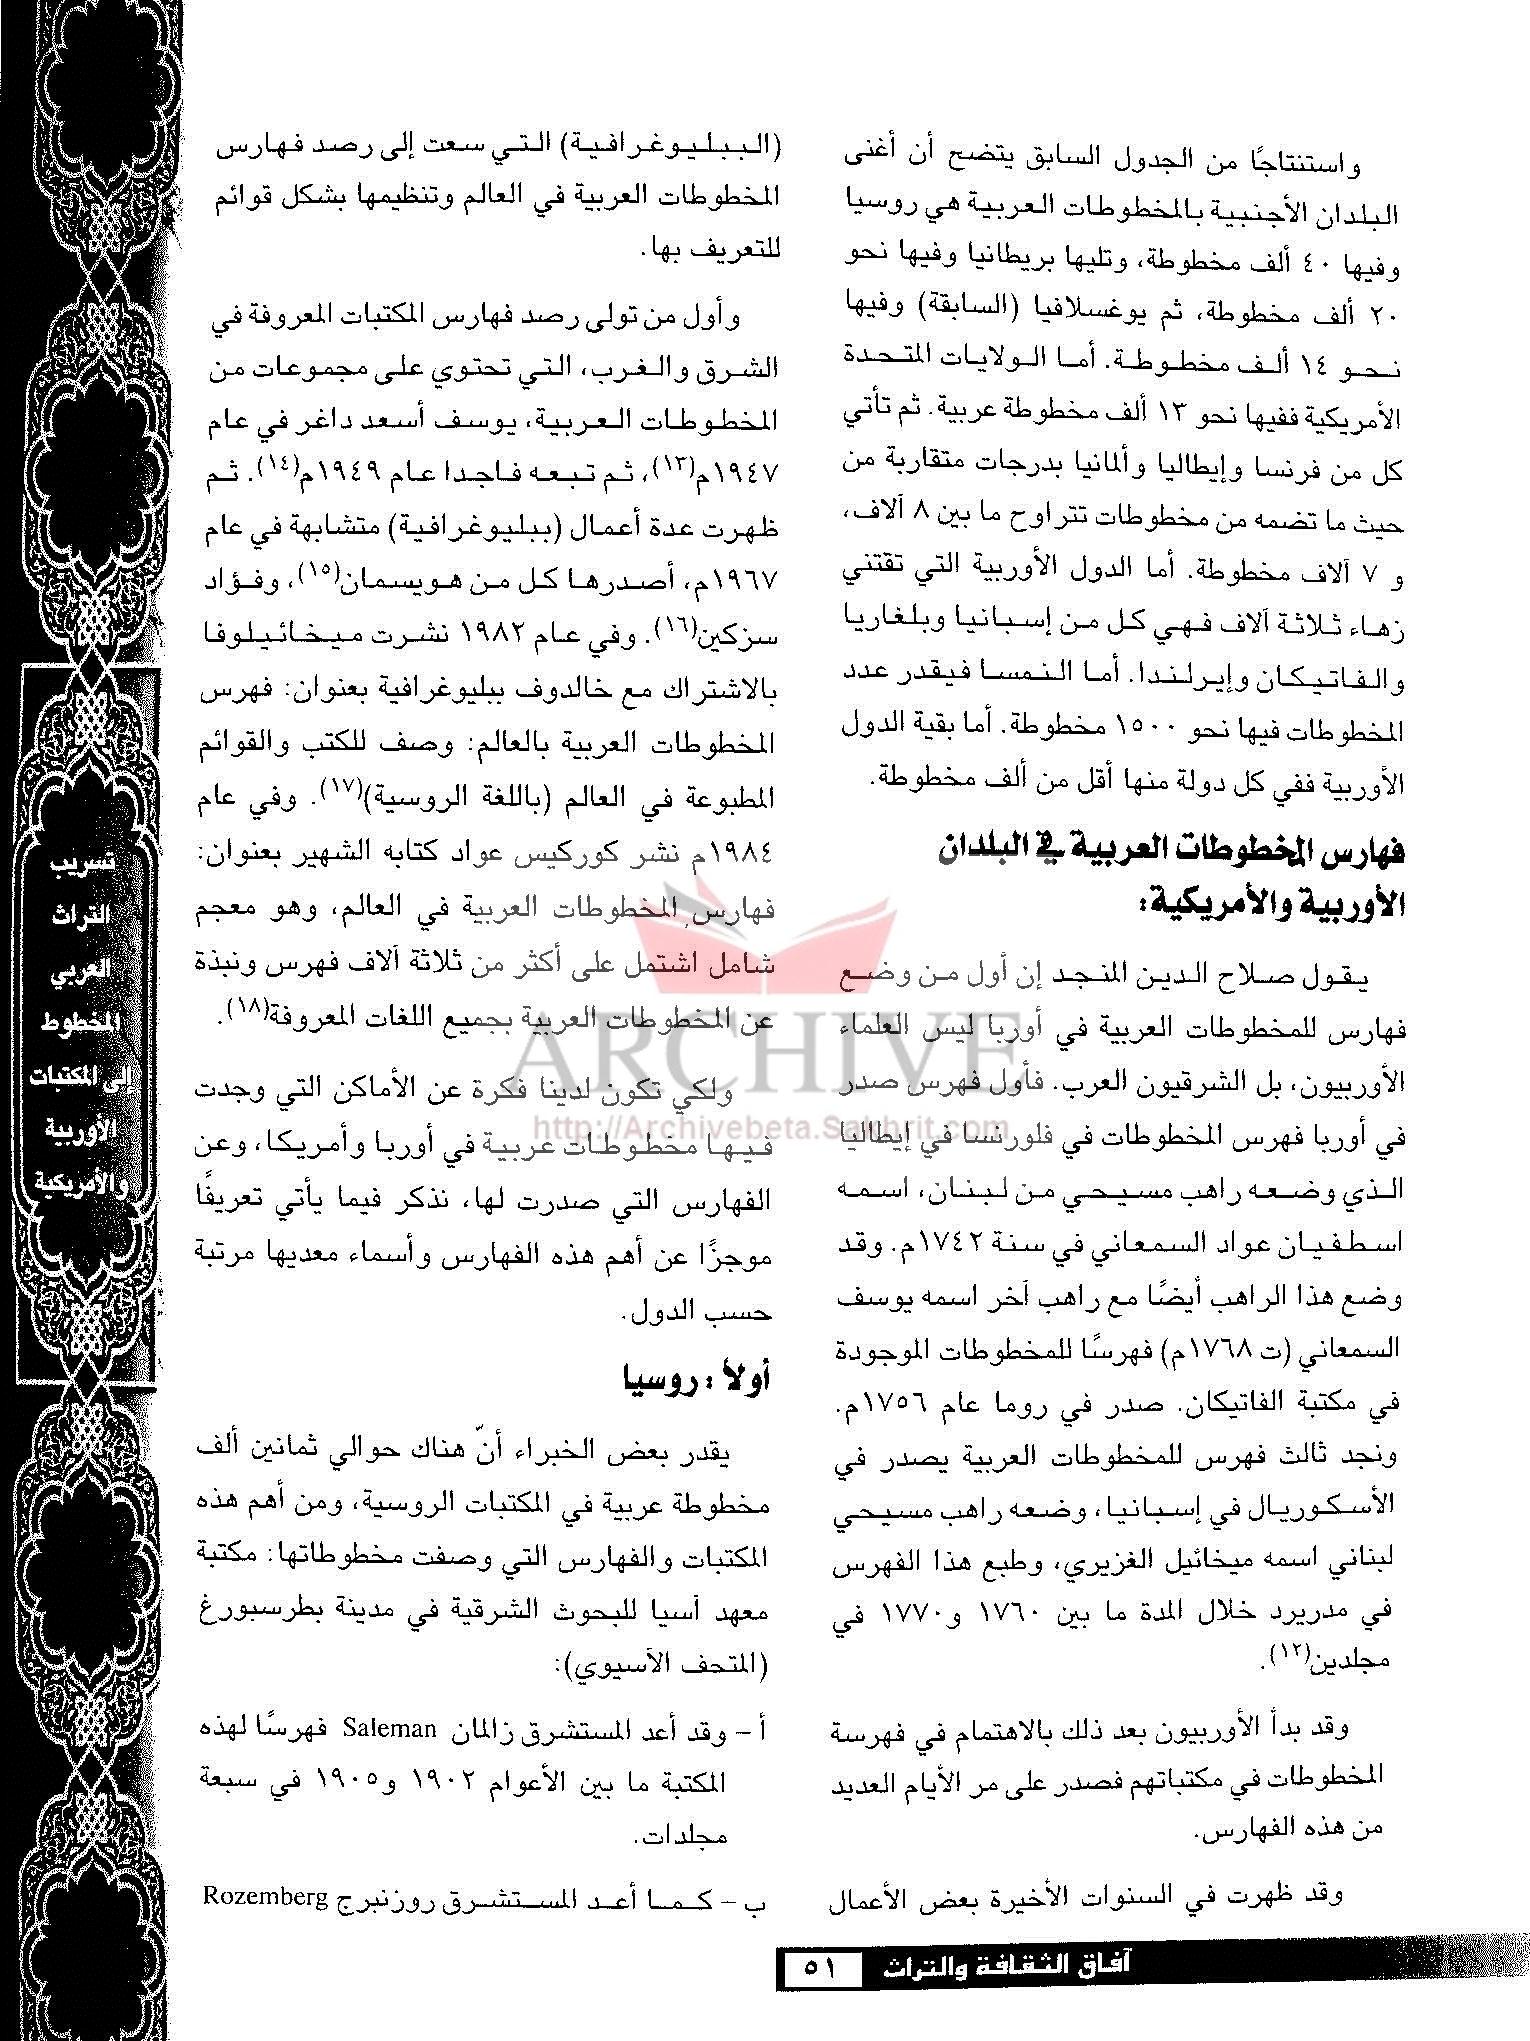 واستنتاجًا من الجدول السابق يتضح أن أغنى
البلدان الأجنبية بالمخطوطات العربية هي روسيا
وفيها ٤٠ ألف مخطوطة، وتليها بريطانيا وفيها نحو
٢٠ ألف مخطوطة، ثم يوغسلافيا (السابقة) وفيها
نحو ١٤ ألف مخطوطة. أما الولايات المتحدة
الأمريكية ففيها نحو ١٣ ألف مخطوطة عربية. ثم تأتي
كل من فرنسا وإيطاليا وألمانيا بدرجات متقاربة من
حيث ما تضمه من مخطوطات تتراوح ما بين ٨ آلاف،
و ٧ آلاف مخطوطة. أما الدول الأوربية التي تقتني
زهاء ثلاثة آلاف فهي كل من إسبانيا وبلغاريا
والفاتيكان وإيرلندا. أما النمسا فيقدر عدد
المخطوطات فيها نحو ١٥٠٠ مخطوطة. أما بقية الدول
الأوربية ففي كل دولة منها أقل من ألف مخطوطة.
فهارس المخطوطات العربية في البلدان
الأوربية والأمريكية:
يقول صلاح الدين المنجد إن أول من وضع
فهارس للمخطوطات العربية في أوربا ليس العلماء
الأوربيون، بل الشرقيون العرب. فأول فهرس صدر
في أوربا فهرس المخطوطات في فلورنسا في إيطاليا
الذي وضعه راهب مسيحي من لبنان، اسمه
اسطفيان عواد السمعاني في سنة ١٧٤٢م. وقد
وضع هذا الراهب أيضًا مع راهب آخر اسمه يوسف
السمعاني (ت ١٧٦٨م) فهرسًا للمخطوطات الموجودة
في مكتبة الفاتيكان. صدر في روما عام ١٧٥٦م.
ونجد ثالث فهرس للمخطوطات العربية يصدر في
الأسكوريال في إسبانيا، وضعه راهب مسيحي
لبناني اسمه ميخائيل الغزيري، وطبع هذا الفهرس
في مدريرد خلال المدة ما بين ١٧٦٠ و١٧٧٠ في
مجلدين(١٢).
وقد بدأ الأوربيون بعد ذلك بالاهتمام في فهرسة
المخطوطات في مكتباتهم فصدر على مر الأيام العديد
من هذه الفهارس.
وقد ظهرت في السنوات الأخيرة بعض الأعمال
(الببليوغرافية) التي سعت إلى رصد فهارس
المخطوطات العربية في العالم وتنظيمها بشكل قوائم
للتعريف بها.
وأول من تولى رصد فهارس المكتبات المعروفة في
الشرق والغرب، التي تحتوي على مجموعات من
المخطوطات العربية، يوسف أسعد داغر في عام
١٩٤٧م(١٣)، ثم تبعه فاجدا عام ١٩٤٩م(١٤). ثم
ظهرت عدة أعمال (ببليوغرافية) متشابهة في عام
١٩٦٧م، أصدرها كل من هويسمان(١٥)، وفؤاد
سزكين(١٦). وفي عام ١٩٨٢ نشرت ميخائيلوفا
بالاشتراك مع خالدوف ببليوغرافية بعنوان: فهرس
المخطوطات العربية بالعالم: وصف للكتب والقوائم
المطبوعة في العالم (باللغة الروسية)(١٧). وفي عام
١٩٨٤م نشر كوركيس عواد كتابه الشهير بعنوان:
فهارس المخطوطات العربية في العالم، وهو معجم
شامل اشتمل على أكثر من ثلاثة آلاف فهرس ونبذة
عن المخطوطات العربية بجميع اللغات المعروفة(١٨).
ولكي تكون لدينا فكرة عن الأماكن التي وجدت
فيها مخطوطات عربية في أوربا وأمريكا، وعن
الفهارس التي صدرت لها، نذكر فيما يأتي تعريفًا
موجزًا عن أهم هذه الفهارس وأسماء معديها مرتبة
حسب الدول.
أولاً : روسيا
يقدر بعض الخبراء أنّ هناك حوالي ثمانين ألف
مخطوطة عربية في المكتبات الروسية، ومن أهم هذه
المكتبات والفهارس التي وصفت مخطوطاتها: مكتبة
معهد آسيا للبحوث الشرقية في مدينة بطرسبورغ
(المتحف الآسيوي):
أ – وقد أعد المستشرق زالمان Saleman فهرسًا لهذه
المكتبة ما بين الأعوام ١٩٠٢ و١٩٠٥ في سبعة
مجلدات.
ب – كما أعد المستشرق روزنبرج Rozemberg
تسريب
التراث
العربي
المخطوط
إلى المكتبات
الأوربية
والأمريكية
ARCHIVE
http://Archivebeta.Sakhrit.com
آفاق الثقافة والتراث ٥١